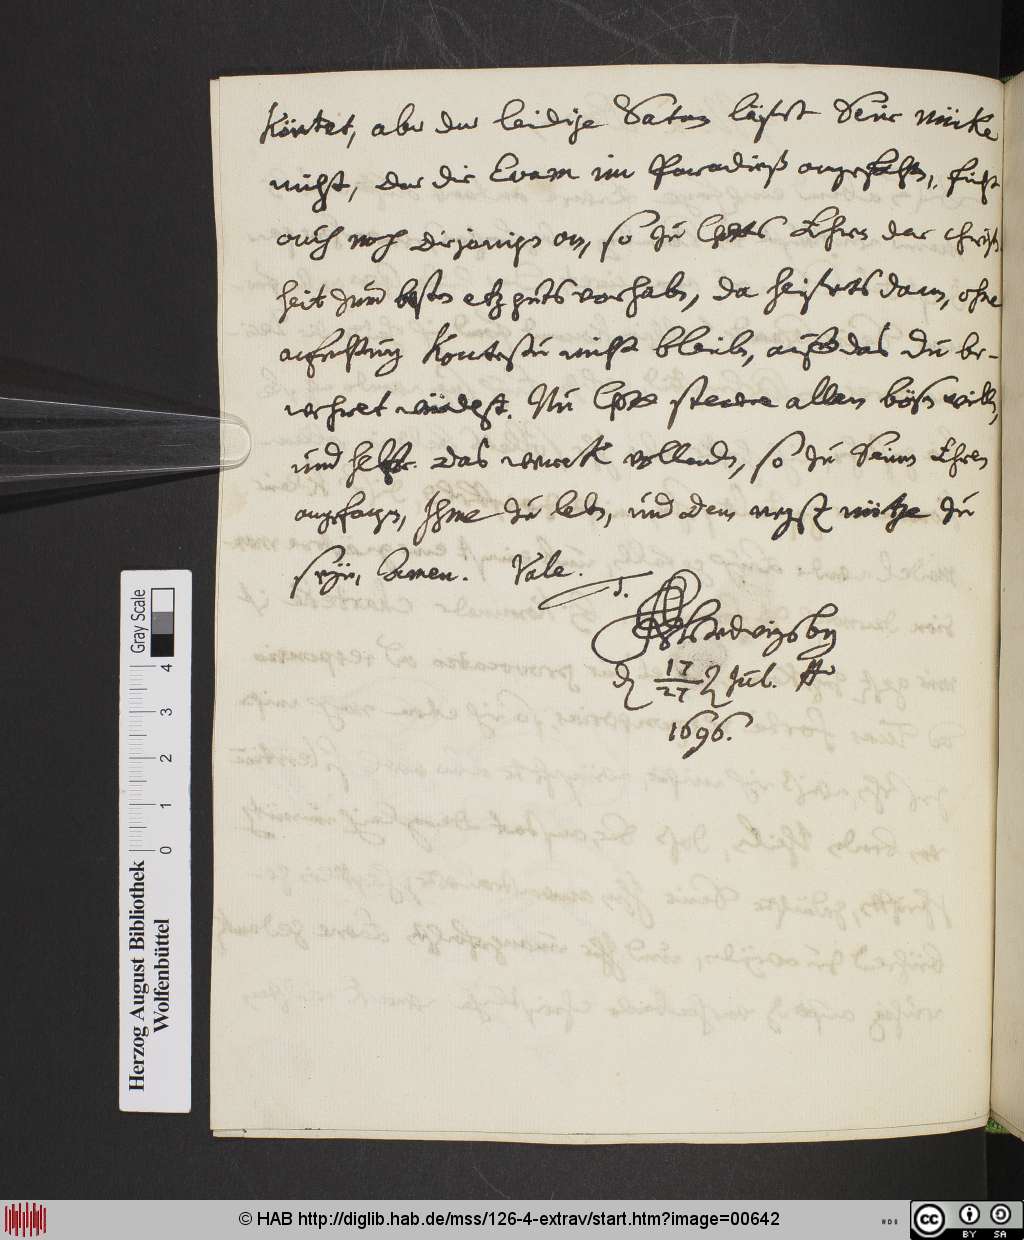 köntet, aber der leidige Satan läßet Seine nücke
nicht, der die Evam im Paradieß angefochten, ficht
auch noch diejenigen an, so zu Gottes Ehren der Christ-
heit zum besten etz guts vorhaben, da heißets dann, ohne
anfechtung kontestu nicht bleiben, auff das du be-
wehret würdest. Nu Gott steure allem bösen willen,
und helffe das werck vollenden, so zu Seinen Ehren
angefangen, Ihme zu leben, und dem negsten nütze zu
seyn, Amen. Vale.
T.
Hedvigsby
d 17/27 Jul.
1696.
Herzog August Bibliothek
Wolfenbüttel
Gray Scale
0 1 2 3 4
© HAB http://diglib.hab.de/mss/126-4-extrav/start.htm?image=00642
cc BY SA